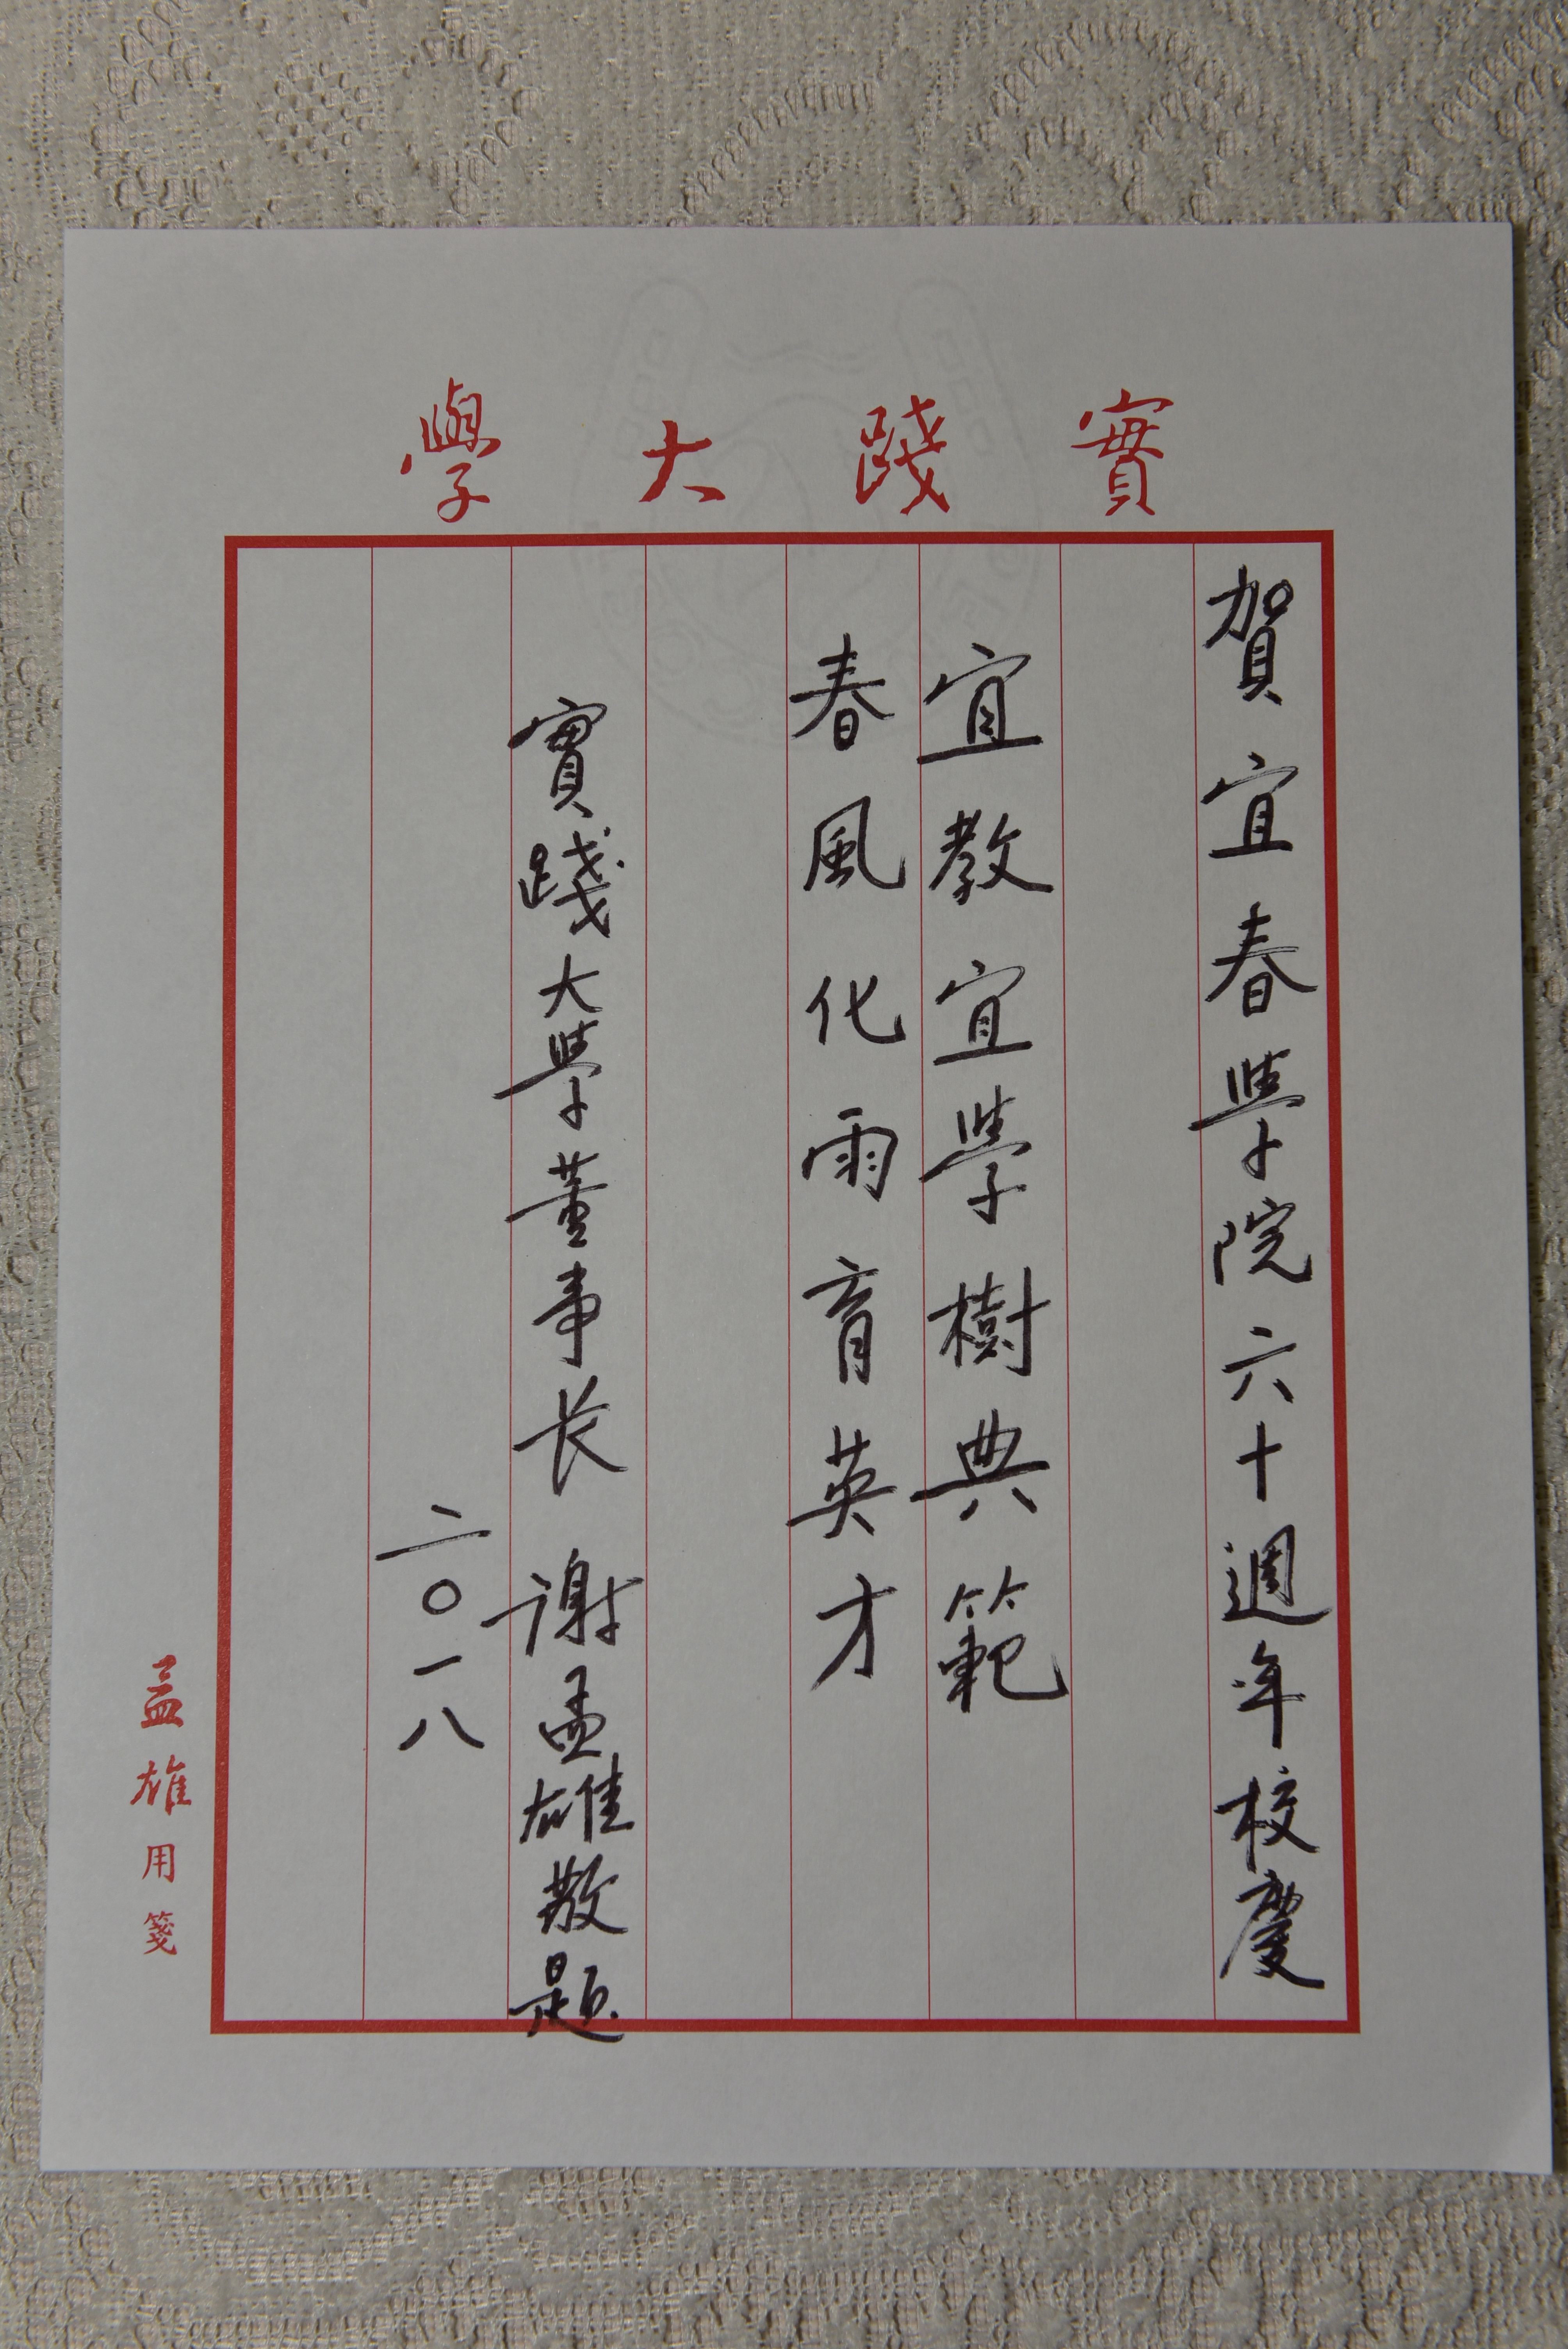 實踐大學
賀宜春學院六十週年校慶
宜教宜學樹典範
春風化雨育英才
實踐大學董事长 谢孟雄敬題
二〇一八
孟雄用箋